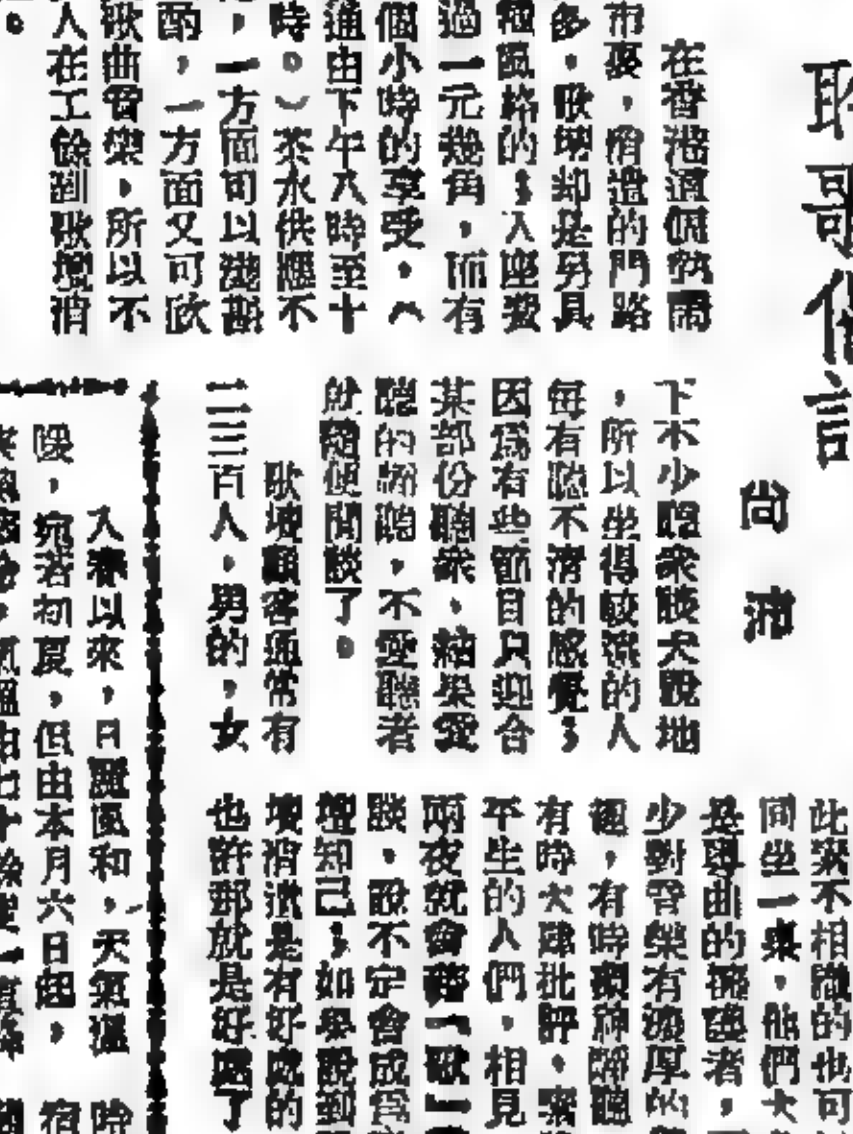 歌偶記
尚沛
在香港這個熱鬧
市廛,消遣的門路
多,歌壇却是另具
種風格的;入座費
過一元幾角,而有
個小時的享受。(
通由下午八時至十
時。)茶水供應不
,一方面可以淺斟
酌,一方面又可欣
歌曲音樂,所以不
人在工餘到歌壇消
下不少聽衆談天說地
,所以坐得較後的人
每有聽不清的感覺;
因爲有些節目只迎合
某部份聽衆,結果愛
聽的靜聽,不愛聽者
就隨便閒談了。
歌壇顧客通常有
二三百人,男的,女
此素不相識的也可
同坐一桌,他們大
是粵曲的擁護者,
少對音樂有濃厚的
趣,有時凝神靜聽
有時大肆批評,素
平生的人們,相見
兩夜就會藉「歌」
談,說不定會成爲
壇知己;如果說到
壇消遣是有好處的
也許那就是好處了
入春以來,日麗風和,天氣溫
暖,宛若初夏,但由本月六日起,